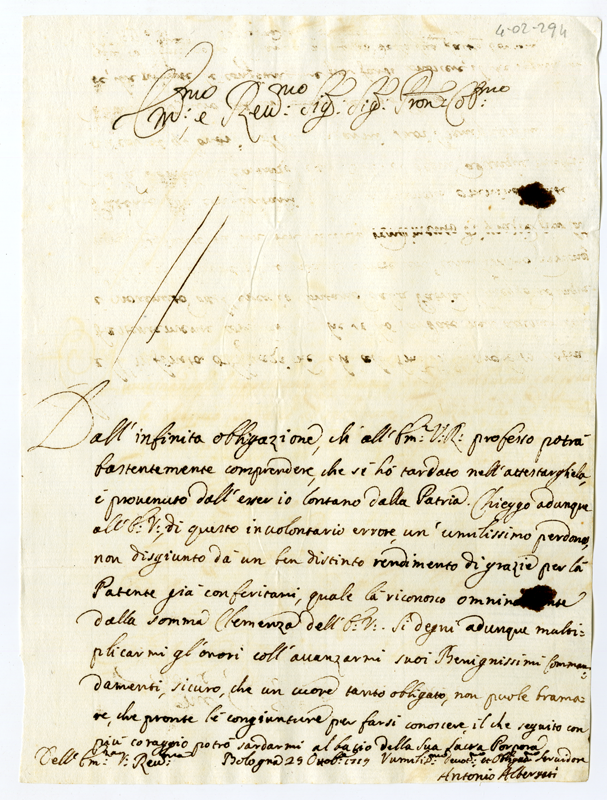 4-02-294
Em:mo e Rev:mo Sig: Sig: Pron: Col:mo
Dall'infinita obligazione, ch'all'Em:a V: R: professo potrà
bastentemente comprendere, che se hò tardato nell'attestarghela,
è provenuto dall'esser io lontano dalla Patria. Chieggo adunque
all'E: V:, di questo involontario errore, un'umilissimo perdono,
non disgiunto dà un ben distinto rendimento di grazie per là
Patente già conferitami, quale là riconosco omnina ente
dalla somma Clemenza dell'E: V:. Si degni adunque multi=
plicarmi gl'onori coll'avanzarmi suoi Benignissimi Comman=
damenti, sicuro, che un cuore tanto obligato, non puole brama=
re, che pronte le congiunture per farsi conoscere, il che seguito con
più coraggio potrò sardarmi al bacio della Sua Sacra Porpora
Dell'Em:a V: Rev:ma Bologna 29 Ottob: 1719 Vumiliss:mo Devot:mo et Servidore
Antonio